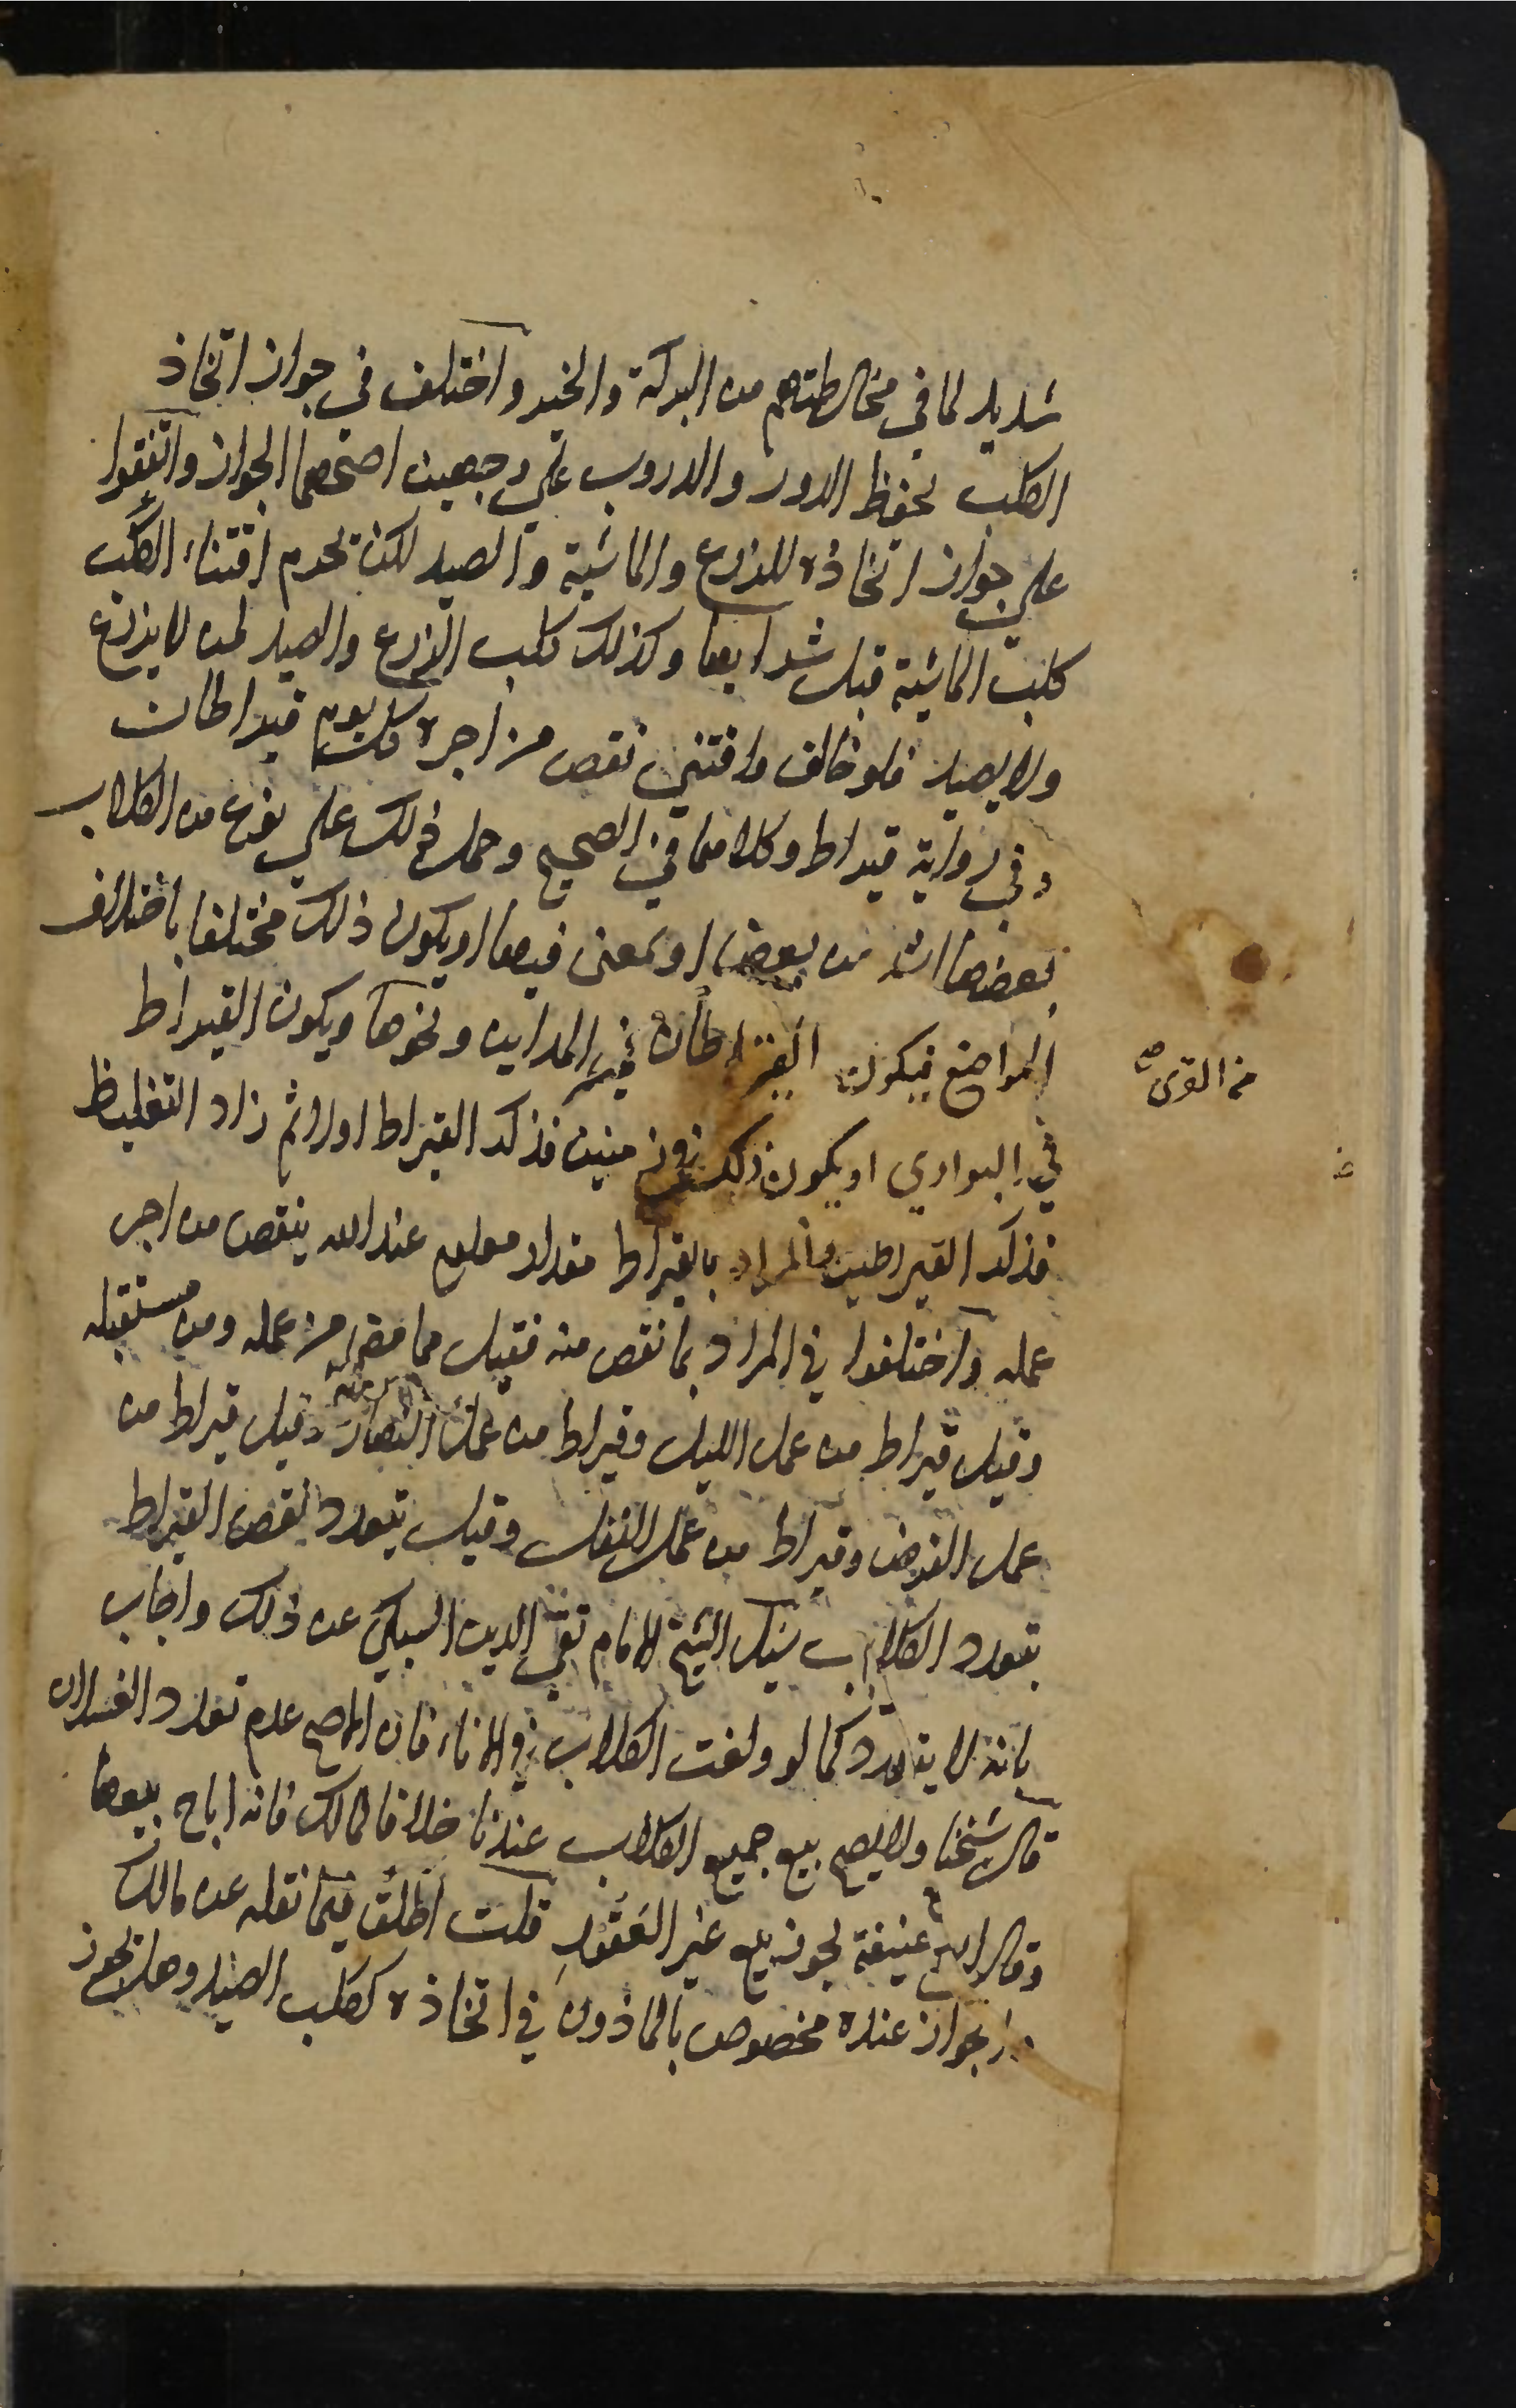 شديد لما في مخالطتهم من البركة والخير واختلف في جواز اتخاذ
الكلب لحفظ الدور والدروب على وجهين اصحهما الجواز واتفقوا
على جواز اتخاذه للزرع والماشية والصيد لكن يحرم اقتناء الكلب
كلب الماشية قبل شرايها وكذلك كلب الزرع والصيد لمن لا يزرع
ولا يصيد فلو خالف واقتني نقص من اجره كل يوم قيراطان
وفي رواية قيراط وكلاهما في الصحيح وحمل ذلك على نوع من الكلاب
بعضها اشد من بعض او لمعنى فيها او يكون ذلك مختلفا باختلاف
المواضع فيكون القيراطان في المداين ونحوها ويكون القيراط
من القرى صح
في البوادي او يكون ذلك في زمنين فذكر القيراط اولا ثم زاد التغليظ
فذكر القيراطين والمراد بالقيراط مقدار معلوم عند الله ينقص من اجر
عمله واختلفوا في المراد بما نقص منه فقيل مما مضى من عمله ومن مستقبله
وقيل قيراط من عمل الليل وقيراط من عمل النهار وقيل قيراط من
عمل الفرض وقيراط من عمل النفل وقيل يتعدد نقص القيراط
بتعدد الكلاب سئل الشيخ الامام تقي الدين السبكي عن ذلك واجاب
بانه لا يتعدد كما لو ولغت الكلاب في الاناء فان الاصح عدم تعدد الغسلات
قال شيخنا ولا يصح بيع جميع الكلاب عندنا خلافا لمالك فانه اباح بيعها
وقال ابو حنيفة يجوز بيع غير العقور قلت اطلق فيما نقله عن مالك
الجواز عنده مخصوص بالماذون في اتخاذه ككلب الصيد وهل يجوز